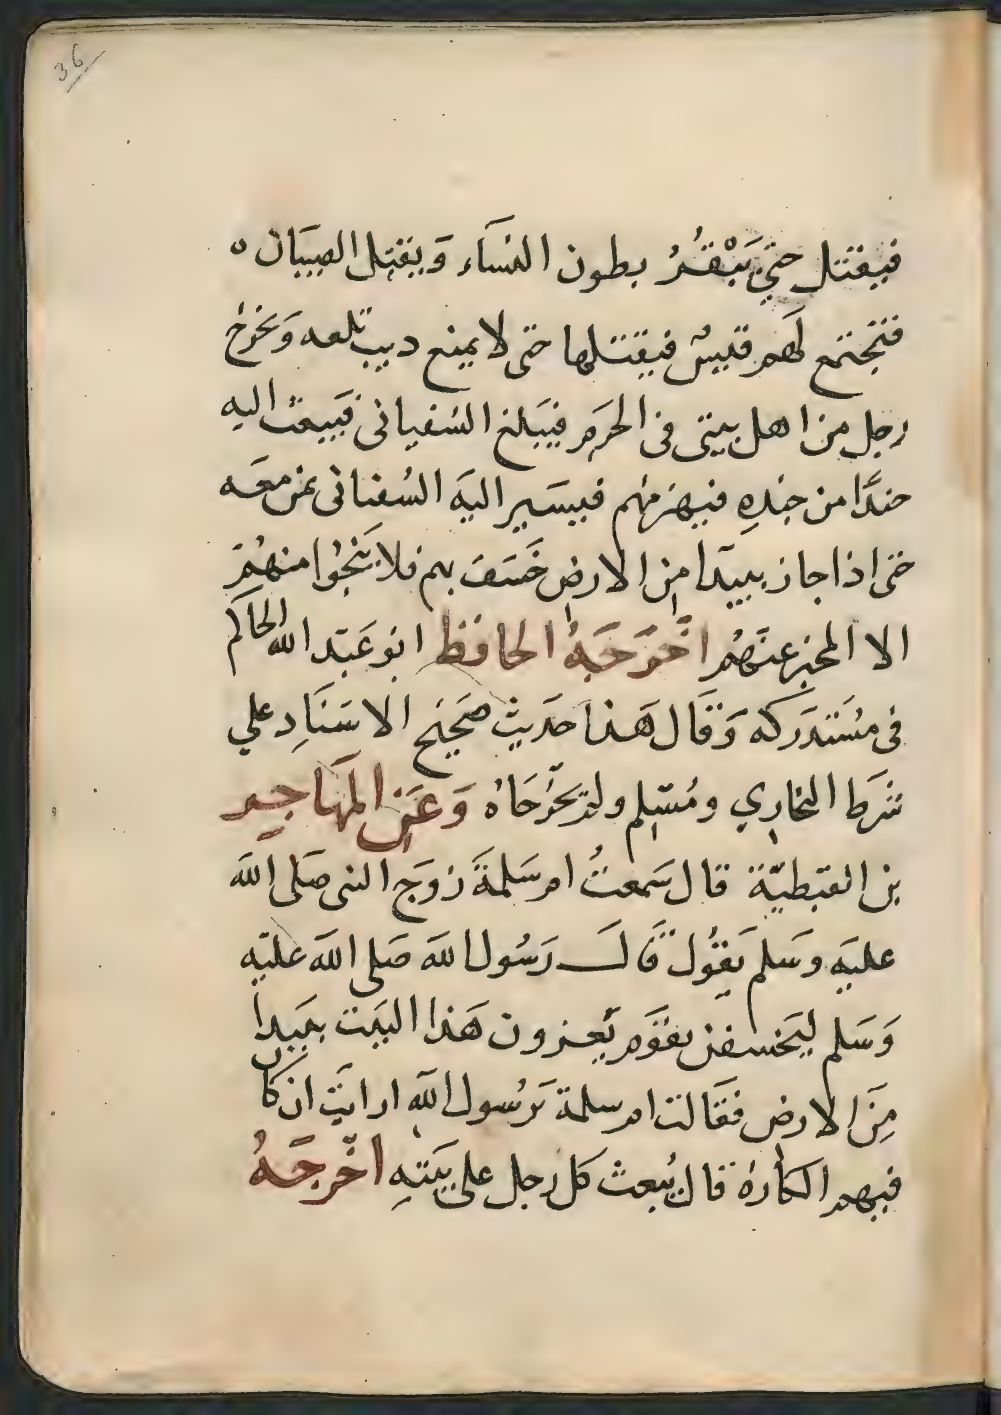 36
فيقتل حتي يَبْقُرُ بطون النسَاء وَيقتِل الصبيَان ه
فتجتمع لَهم قيسٌ فيقتلها حتى لا يمنع ذنب تلعه وَيخرج
رجل من اهل بيتى فى الحَرَمِ فيَبلغ السُفيانى فيَبعث اليه
جندًا من جندِهِ فيهزمهم فيسَير اليَه السُفيانى بمن معَه
حتى اذا جاز ببيدَآ من الارض خَسَفَ بهم فلا يَنجُوا منهُمْ
الا المخبر عنَهُم اخَرَجَهُ الحافظ ابو عَبَد الله الحَاكم
فى مُسَتَدَركه وَقَال هَذا حَديث صَحَيح الاسَنَادِ علي
شَرط البخاري ومُسَلم ولم يخَرُجَاهُ وَعَن المهَاجِر
بن القبطيّة قال سَمعتُ ام سَلمَةَ زوَج النبى صَلى اللَه
عليَهِ وسَلم يَقُول قَالـ رَسُول اللَه صَلى اللَه عليَه
وَسَلم ليَخسفن بقوَم يَغزون هَذا البَيت بَبيدا
مِنَ الارض فقَالت ام سلمة يَرسُول اللَه ارايَت ان كان
فيهم الكارهُ قال يُبعث كل رجل على نيَتهِ اخّرجَهُ